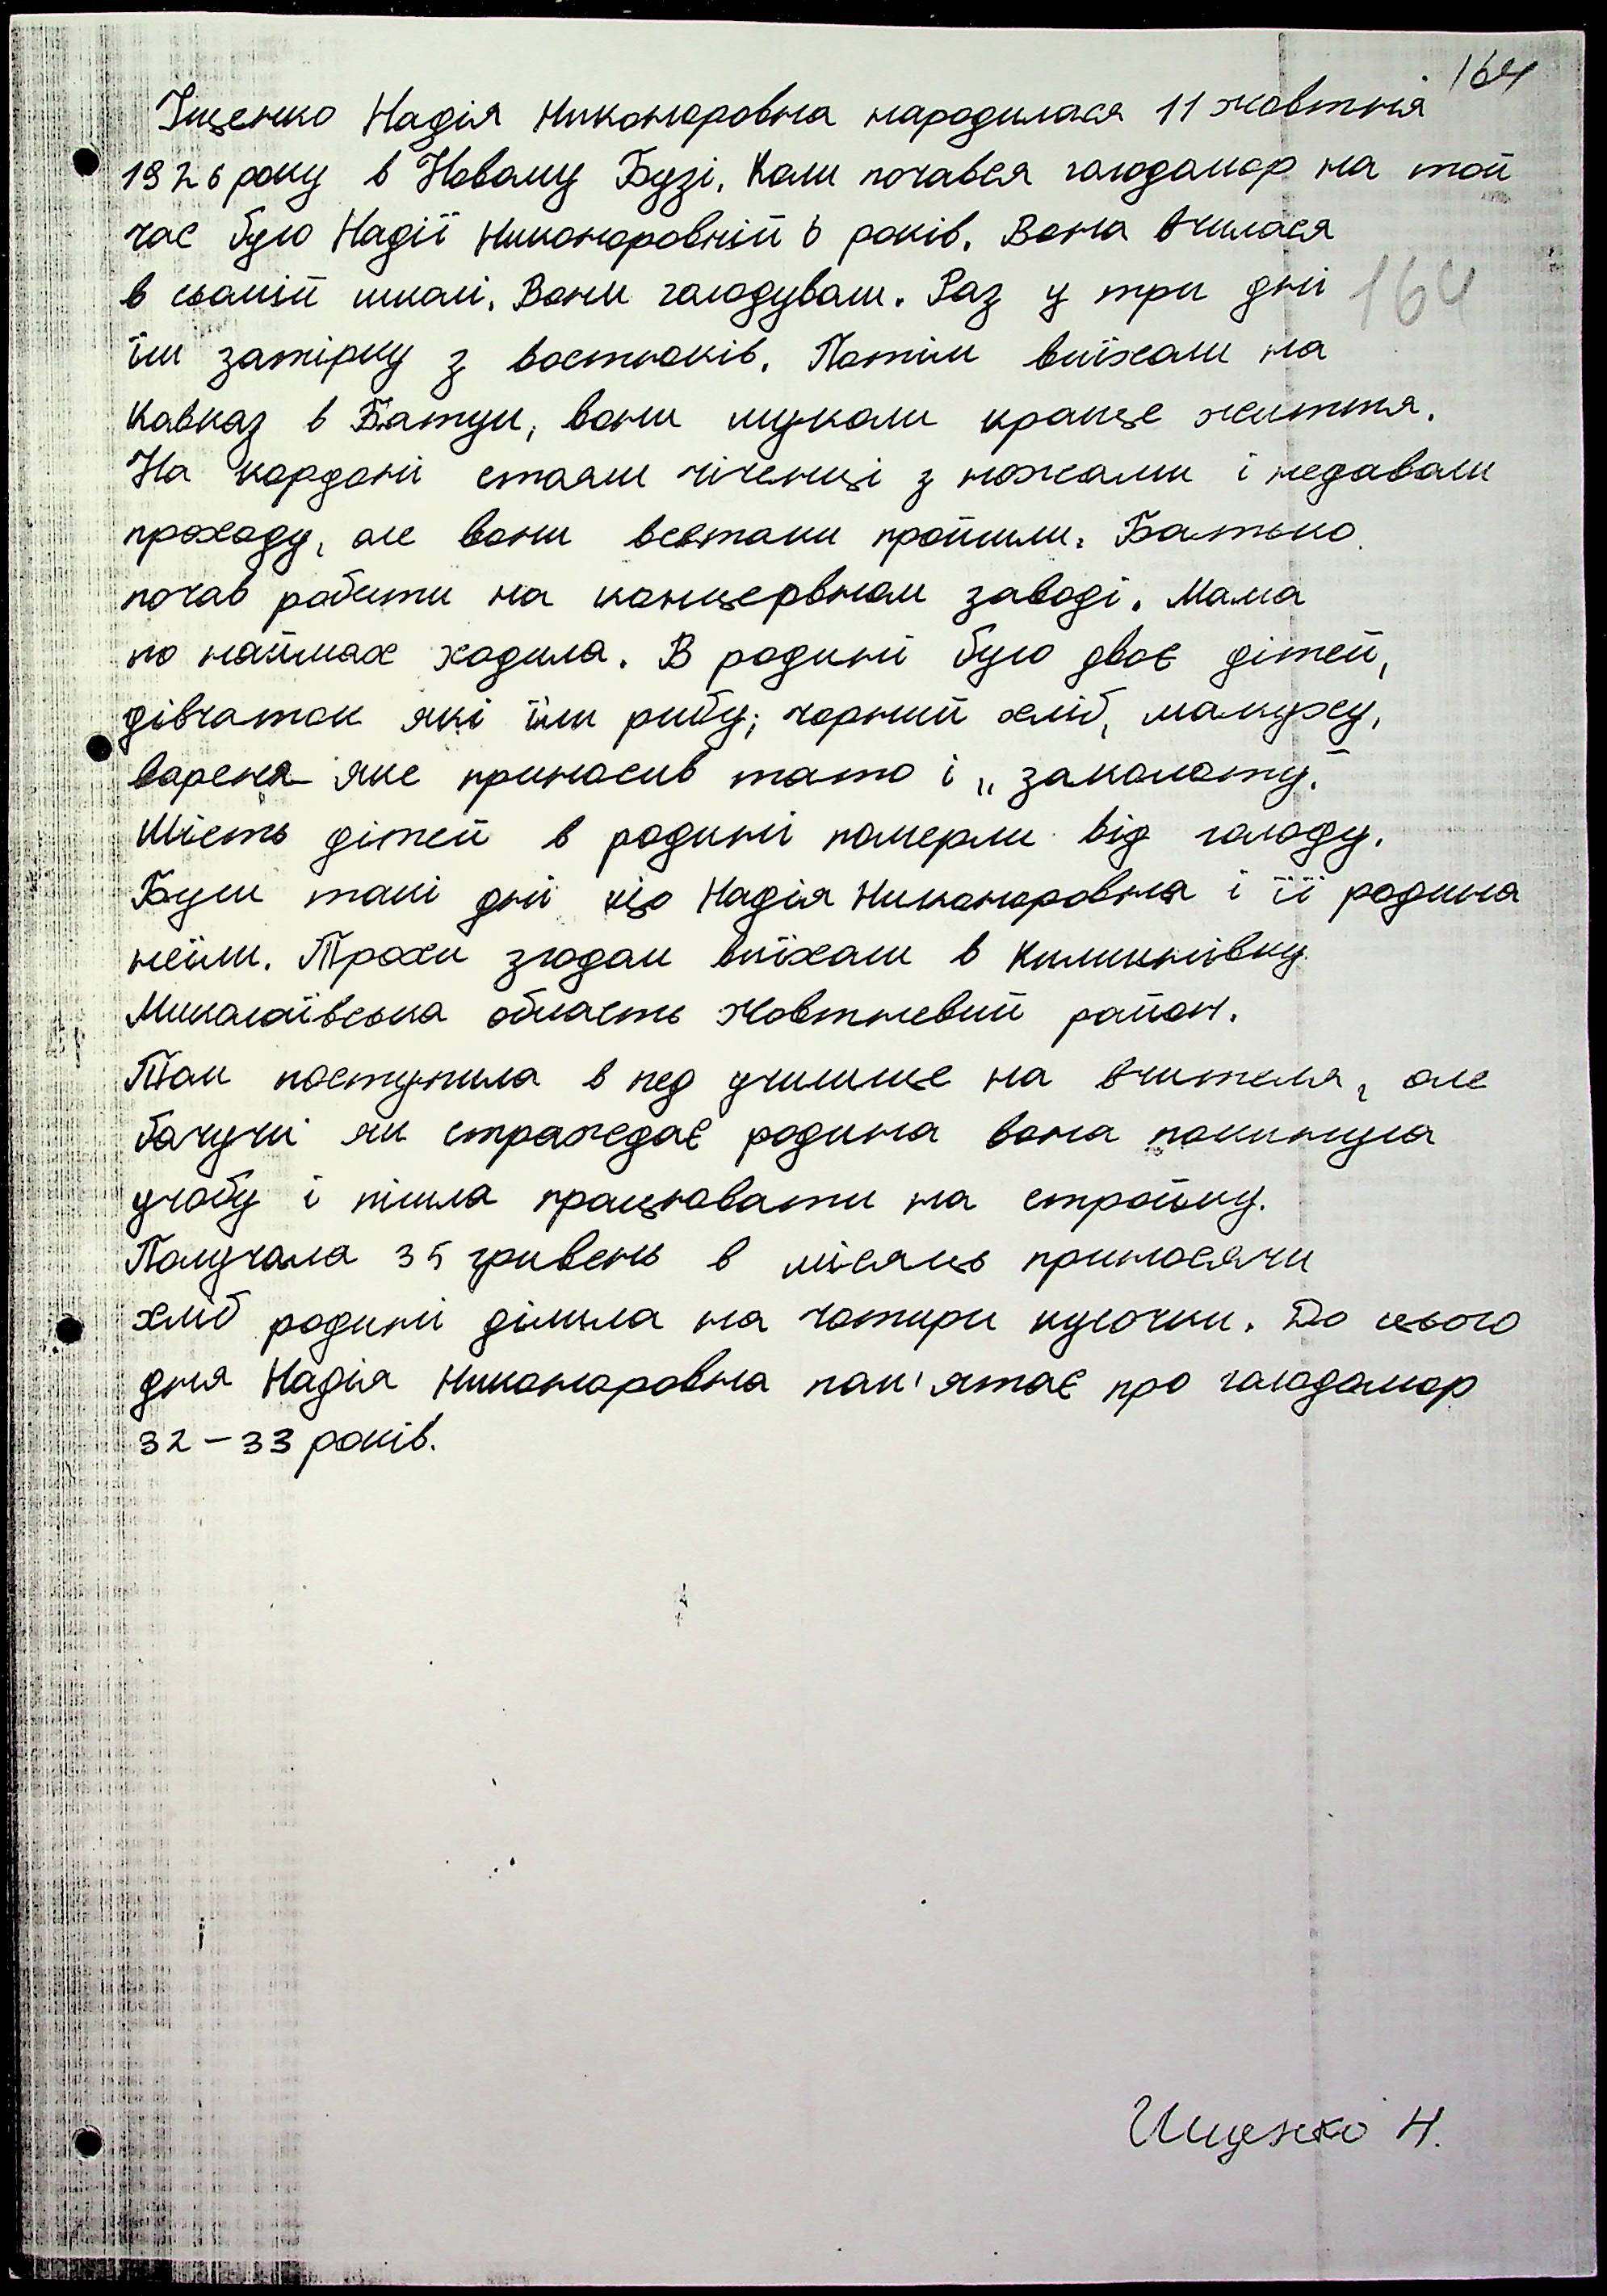 164
Іщенко Надія Никонорoвна народилася 11 жовтня
1926 року в Новому Бузі. Коли почався голодомор на той
час було Надії Никоноровній 6 років. Вона вчилася
в сьомій школі. Вони голодували. Раз у три дні
164
їли затірку з востюків. Потім виїхали на
Кавказ в Батум, вони шукали краще життя.
На кордоні стояли чіченці з ножами і недавали
проходу, але вони всетаки пройшли. Батько
почав робити на концервном заводі. Мама
по наймах ходила. В родині було двоє дітей,
дівчаток які їли рибу, чорний хліб, макуху,
варення яке приносив тато і „заколоту."
Шість дітей в родині померли від голоду.
Були такі дні що Надія Никоноровна і її родина
неїли. Трохи згодом виїхали в Калинівку
Миколаївська область Жовтневий район.
Там поступила в пед училище на вчителя, але
бачучи як страждає родина вона покинула
учобу і пішла працювати на стройку.
Получала 35 гривень в місяць приносячи
хліб родині ділила на чотири кусочки. До цього
дня Надія Никоноровна пам'ятає про голодомор
32-33 років.
Ищенко Н.